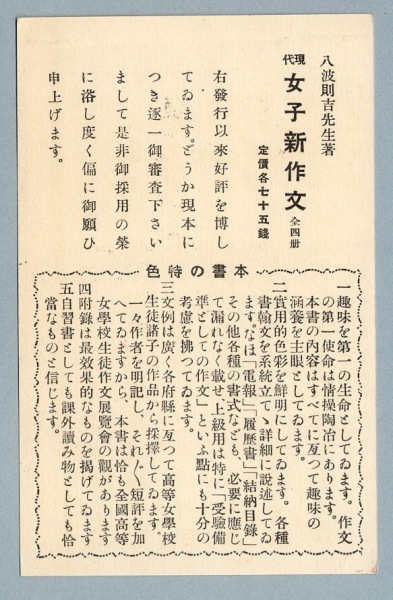 八波則吉先生著
現代 女子新作文 全四册
定價各七十五錢
右發行以來好評を博し
てゐます。どうか現本に
つき逐一御審査下さい
まして是非御採用の榮
に浴し度く偏に御願ひ
申上げます。
本書の特色
一趣味を第一の生命としてゐます。作文
の第一使命は情操陶冶にあります。
本書の内容はすべてに亙つて趣味の
涵養を主眼としてゐます。
二實用的色彩を鮮明にしてゐます。各種
書翰文を系統立てゝ詳細に説述してゐ
ます。なほ「電報」「履歴書」「結納目錄」
その他各種の書式なども、必要に應じ
て漏れなく載せ、上級用は特に「受驗備
準としての作文」といふ點にも十分の
考慮を拂つてゐます。
三文例は廣く各府縣に亙つて高等女學校
生徒諸子の作品から採擇してゐます。
一々作者を明記し、それ〲短評を加
へてゐますから、本書は恰も全國高等
女學校生徒作文展覽會の觀があります
四附錄は最效果的なものを揭げてゐます
五自習書としても課外讀み物としても恰
當なものと信じます。